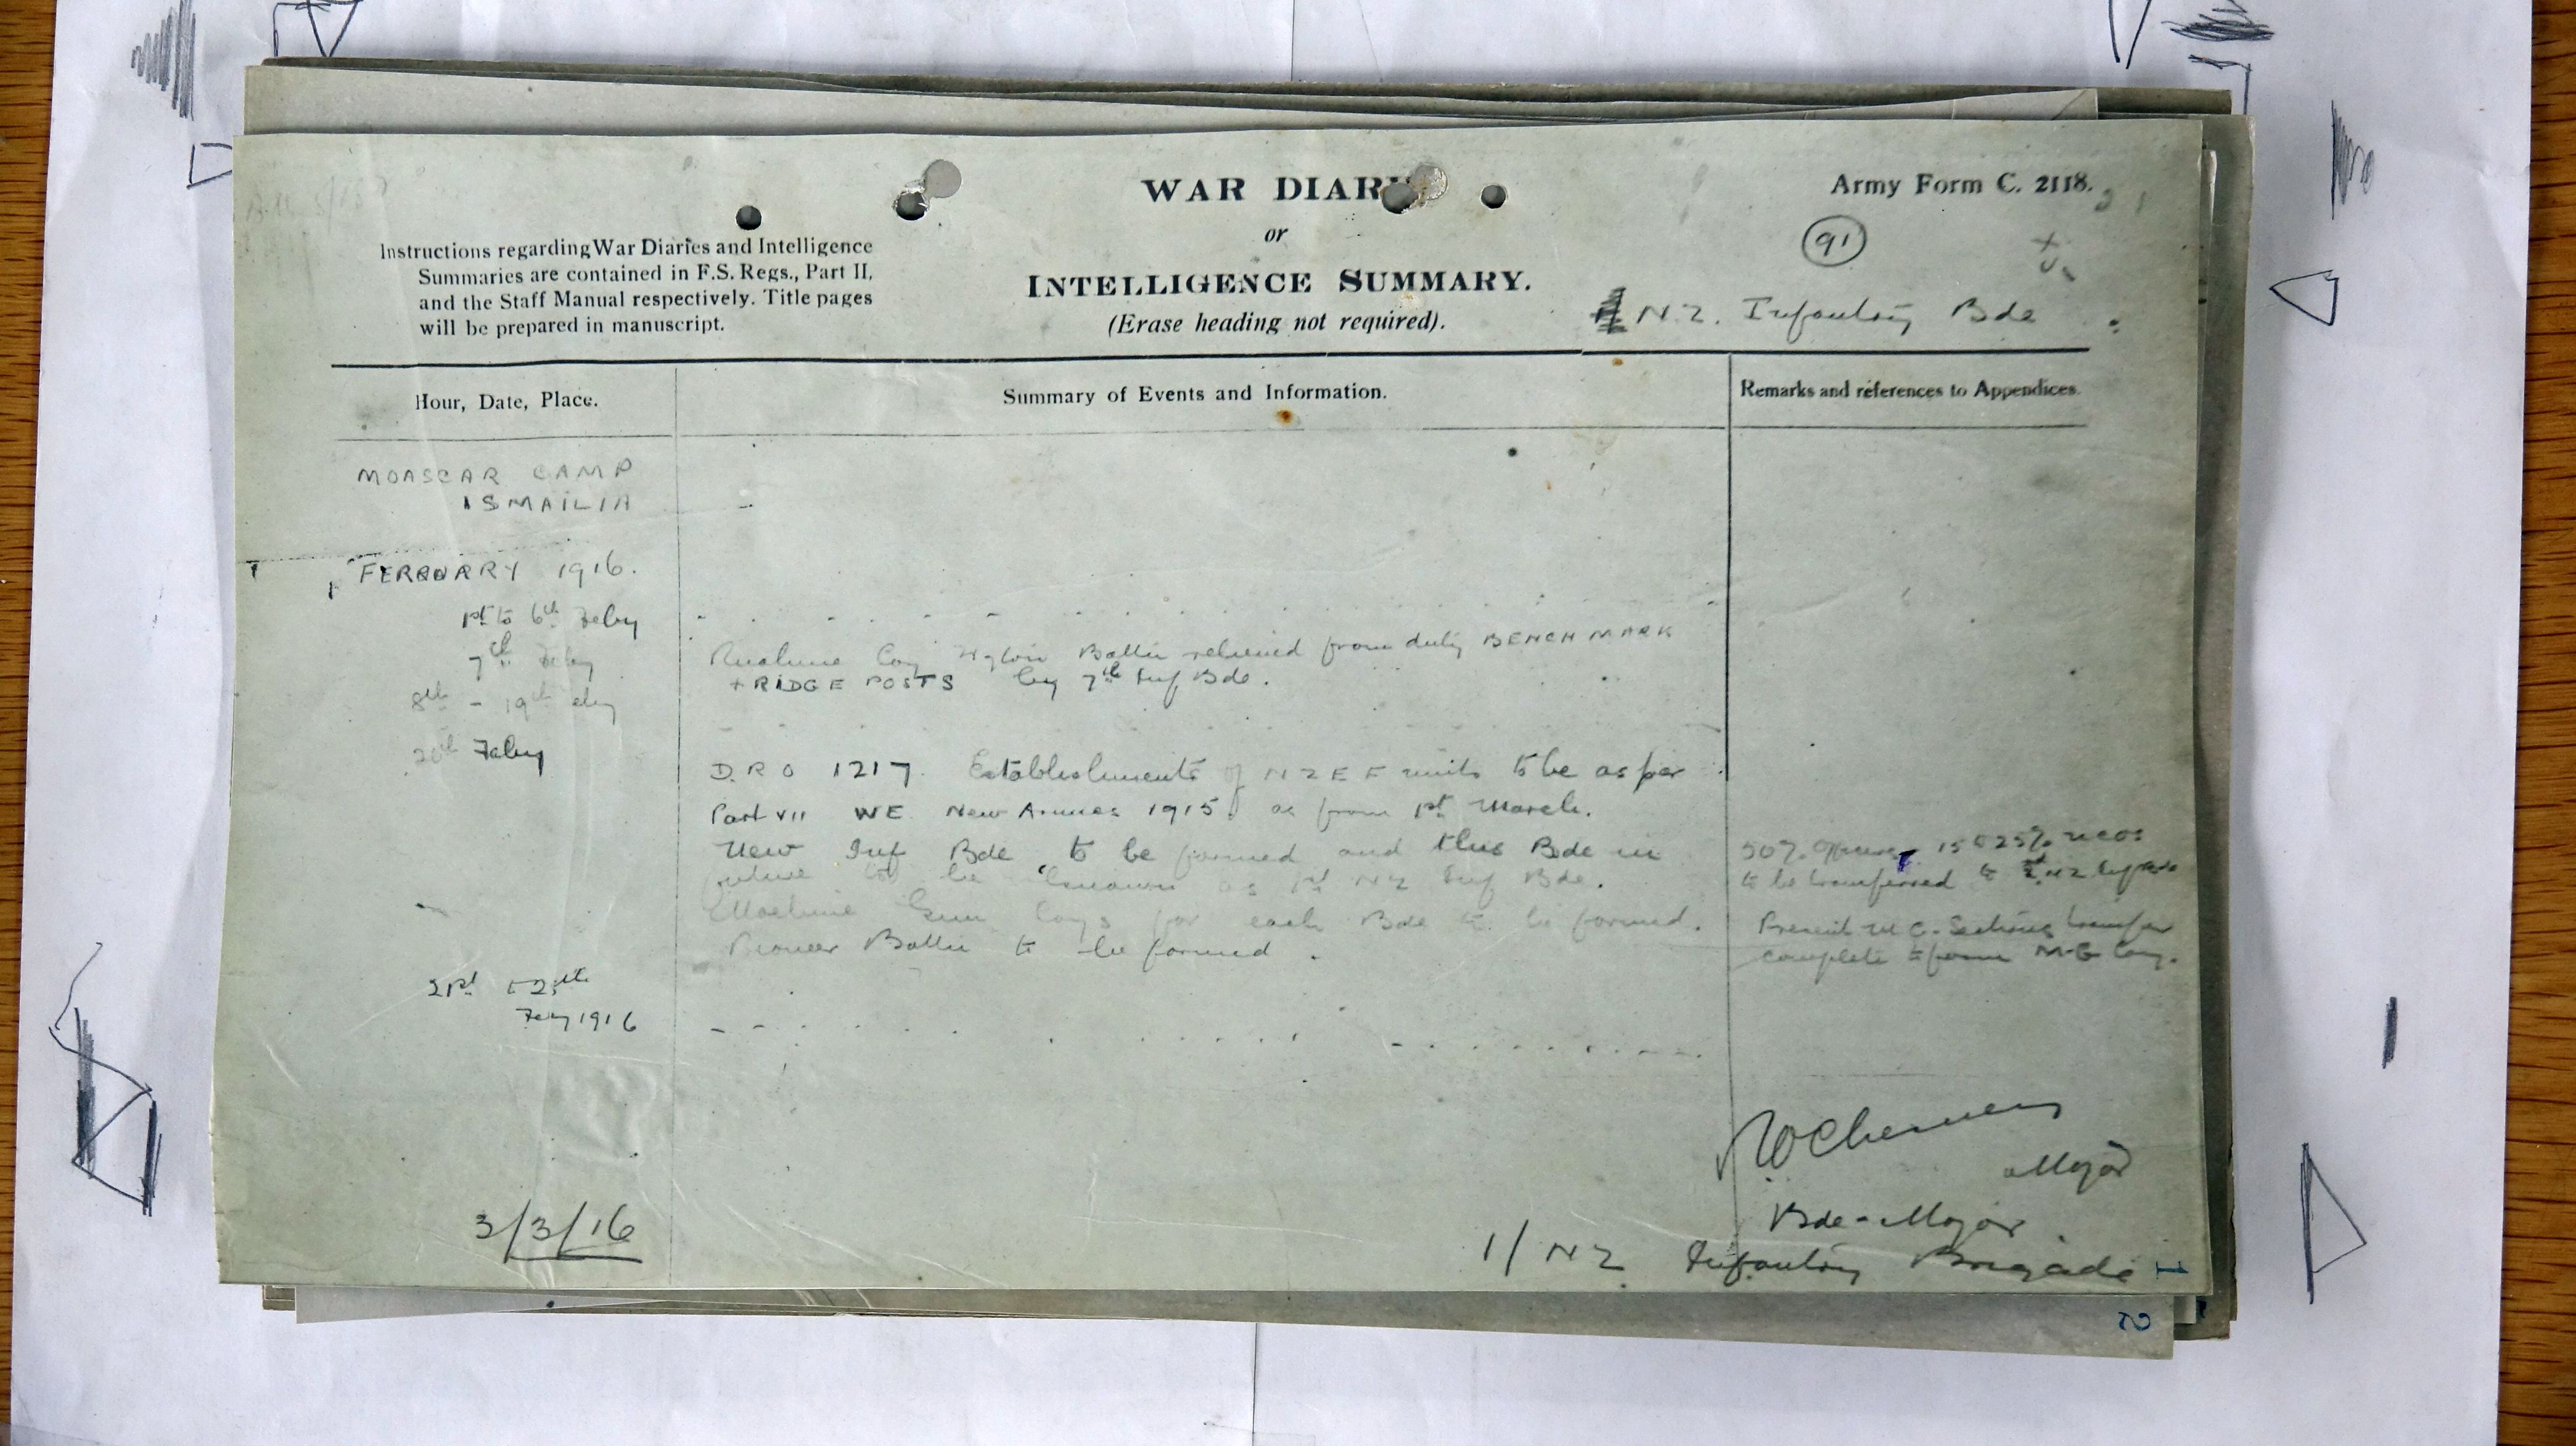 WAR DIARY
Army Form C. 2118.
or
91
Instructions regarding War Diaries and Intelligence
Summaries are contained in F.S. Regs., Part II,
and the Staff Manual respectively. Title pages
will be prepared in manuscript.
INTELLIGENCE SUMMARY.
(Erase heading not required).
N.Z. Infantry Bde
Hour, Date, Place.
Summary of Events and Information.
Remarks and references to Appendices.
MOASCAR CAMP
ISMAILIA
FERBUARY 1916.
1st to 6th Feby
7th Feby
Ruahine Coy Wgton Battn relieved from duty BENCH MARK
+ RIDGE POSTS by 7th Inf Bde.
8th - 19th
20th Feby
D.R.O 1217. Establishments of NZEF units to be as per
Part VII WE New Armies 1915 as from 1st March.
New Inf Bde to be formed and this Bde in
future to be known as 1st NZ Inf Bde.
Machine Gun Coys for each Bde to be formed.
Pioneer Battn to be formed.
50% Officers 15 to 25% NCOs
to be transferred to 2nd NZ Inf Bde
Present M G. Sections transfer
complete to form M-G Coy.
21st to
Feby 1916
Major
Bde-Major
1/ NZ Infantry Brigade
3/3/16
1
2